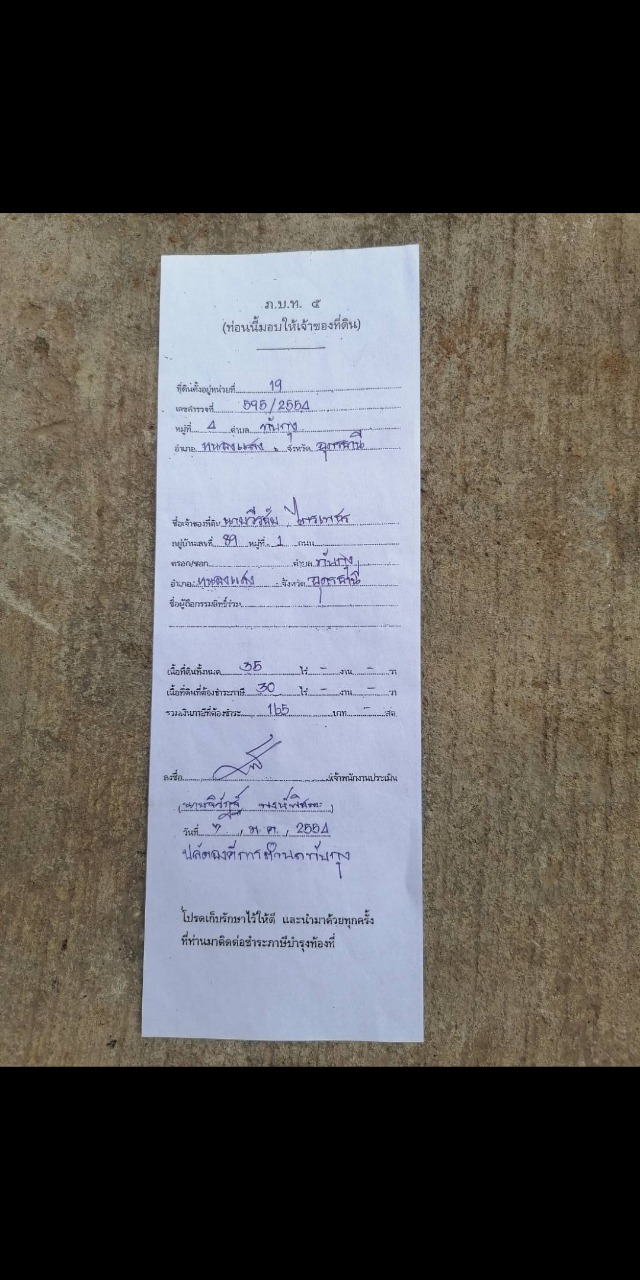 ภ.บ.ท. ๕
(ท่อนนี้มอบให้เจ้าของที่ดิน)
ที่ดินตั้งอยู่หน่วยที่ 19
เลขสำรวจที่ 595/2554
หมู่ที่ 4 ตำบล ทับกุง
อำเภอ หนองแสง จังหวัด อุดรธานี
ชื่อเจ้าของที่ดิน
อยู่บ้านเลขที่ 89 หมู่ที่ 1 ถนน
ตรอก/ซอก ตำบล ทับกุง
อำเภอ หนองแสง จังหวัด อุดรธานี
ชื่อผู้ถือกรรมสิทธิ์ร่วม
เนื้อที่ดินทั้งหมด 35 ไร่ - งาน - วา
เนื้อที่ดินที่ต้องชำระภาษี 30 ไร่ - งาน - วา
รวมเงินภาษีที่ต้องชำระ 165 บาท - สต
ลงชื่อ เจ้าพนักงานประเมิน
วันที่ 7 , ม.ค. , 2554
ปลัดองค์การตำบลทับกุง
โปรดเก็บรักษาไว้ให้ดี และนำมาด้วยทุกครั้ง
ที่ท่านมาติดต่อชำระภาษีบำรุงท้องที่